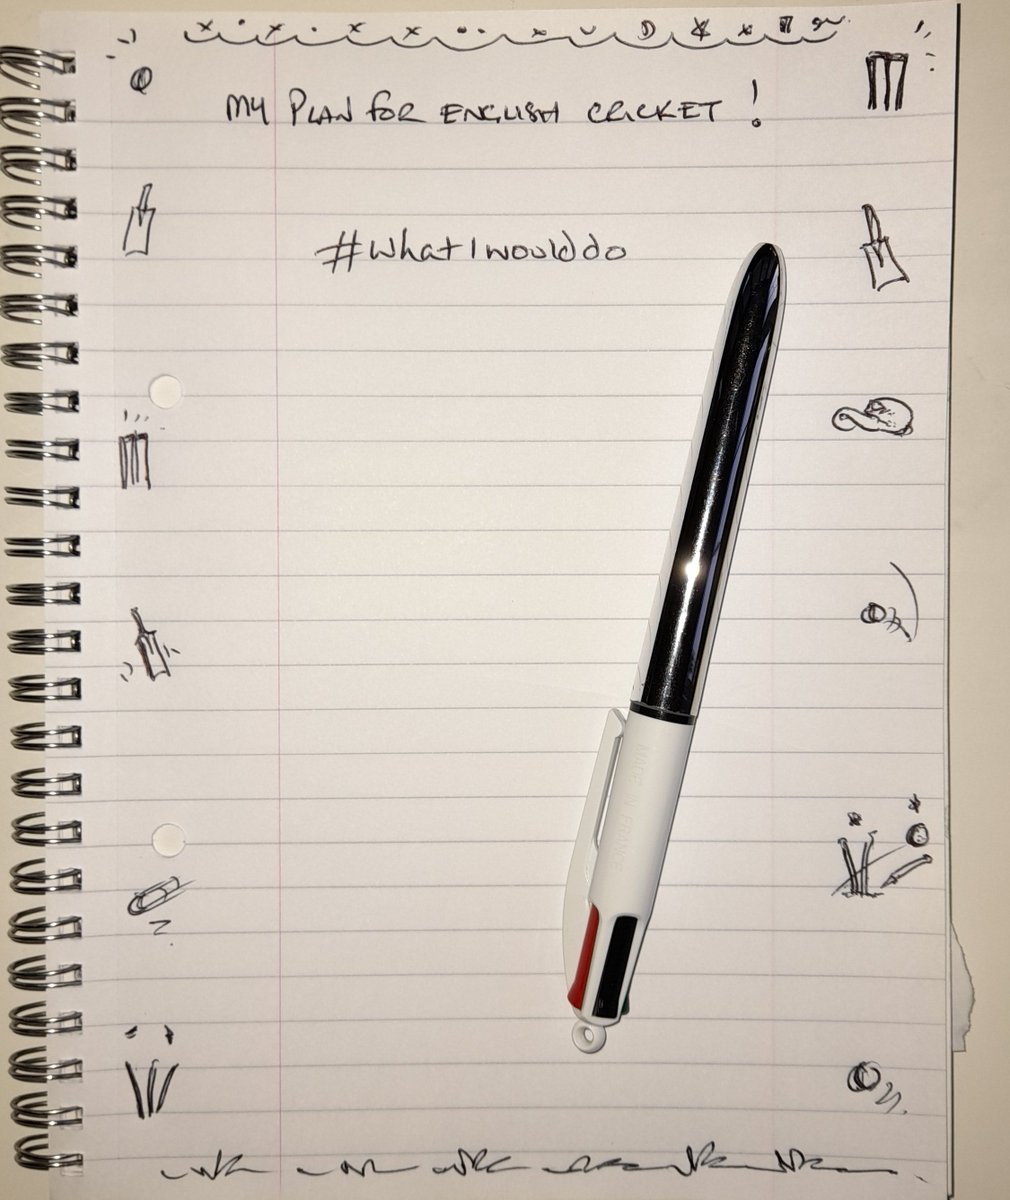 MY PLAN FOR ENGLISH CRICKET!
#whatIwoulddo
MADE IN FRANCE